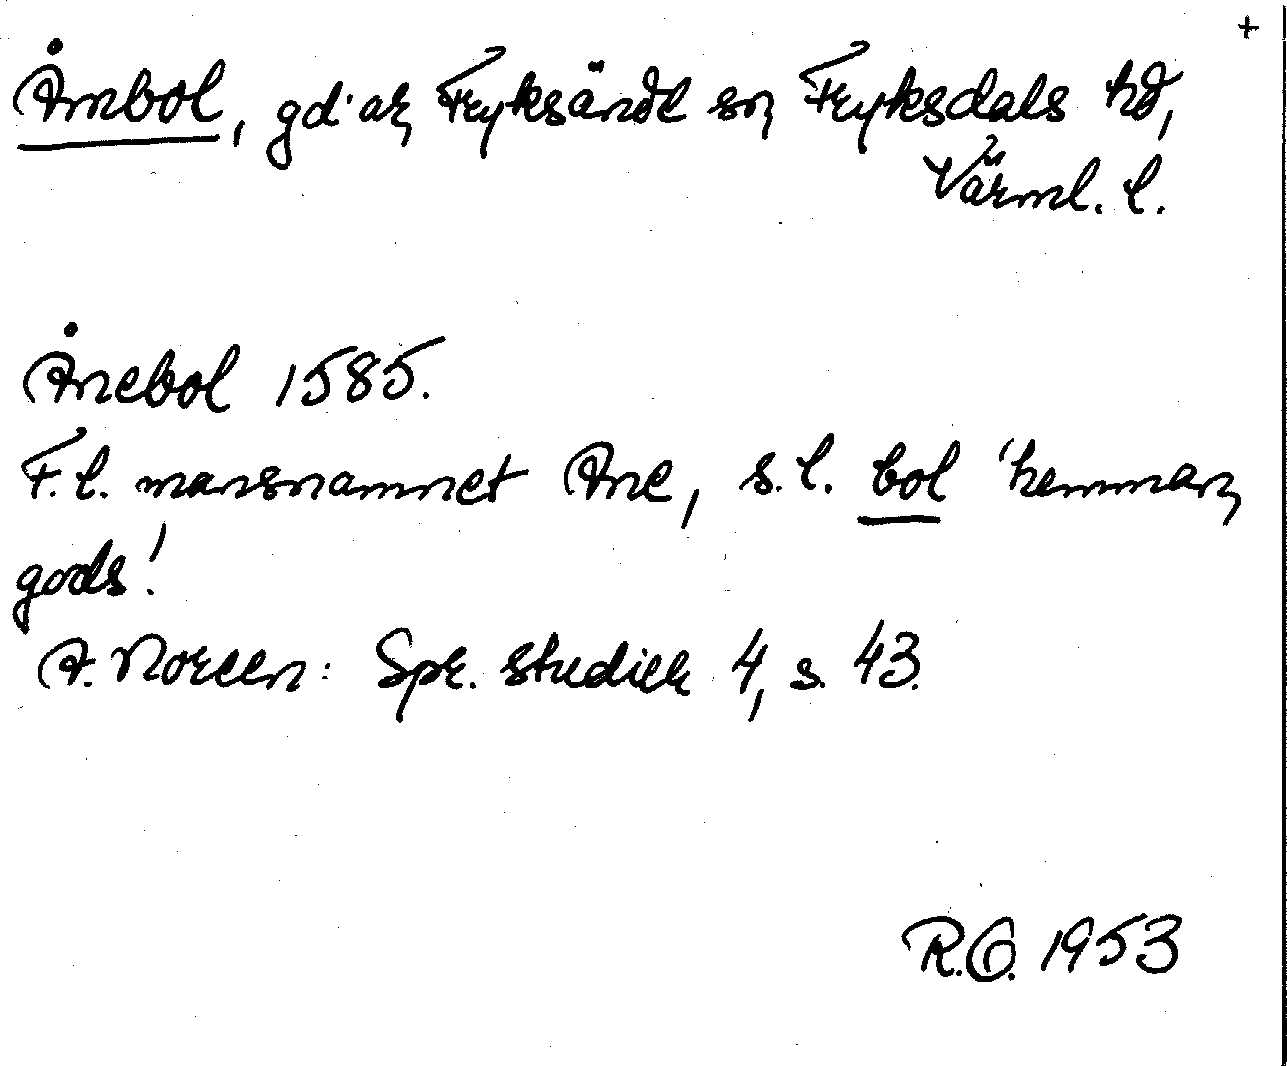 +
Åmbol, gd·ar, Fryksände sn, Fryksdals hd,
Värml. l.
Ånebol 1585.
F.l. mansnamnet Ane, s.l. bol 'hemman,
gods'.
A. Noreen: Spr. studier 4, s. 43.
R.O. 1953